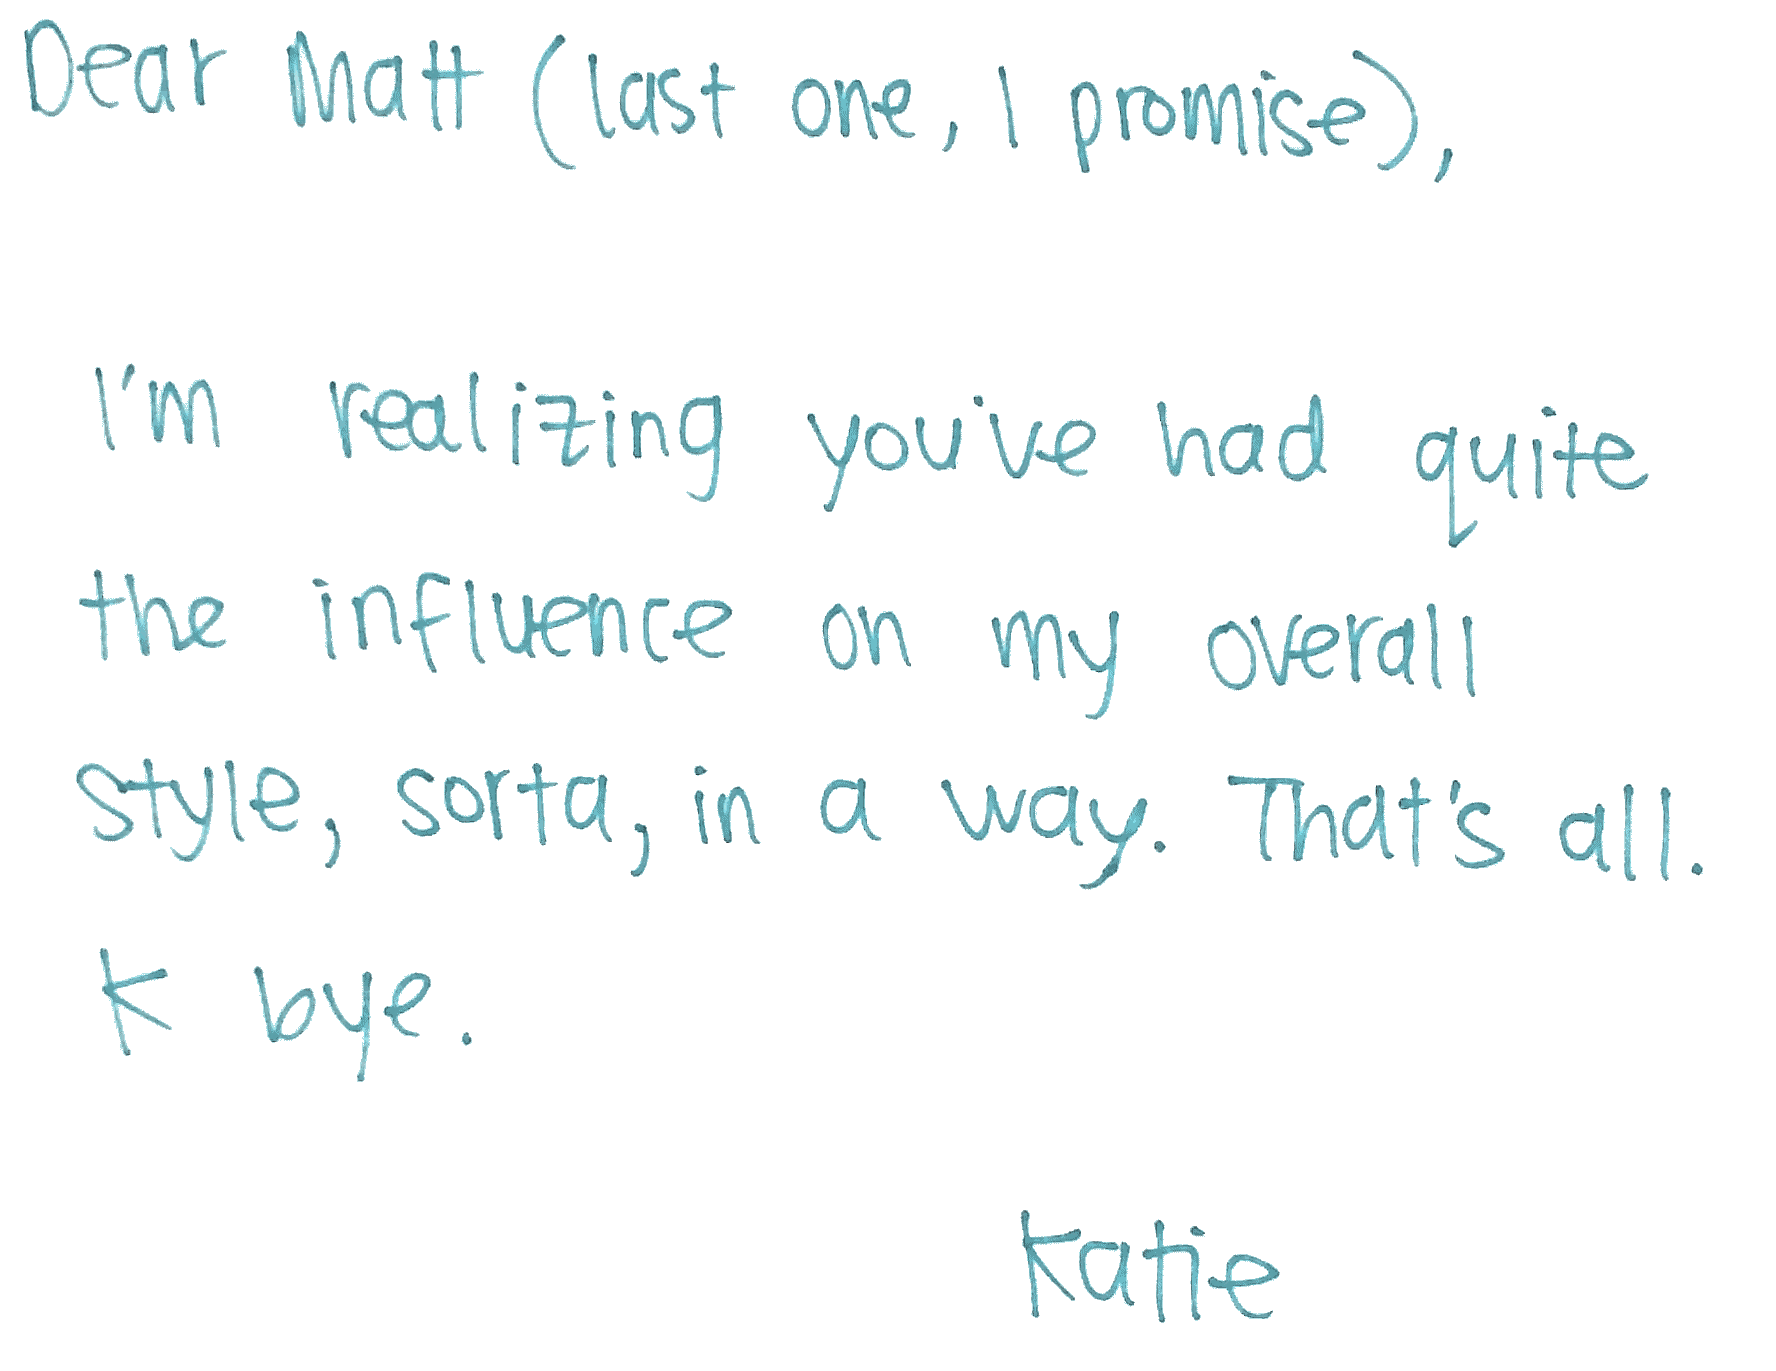 Dear Matt (last one, I promise),
I'm realizing you've had quite
the influence on my overall
style, sorta, in a way. That's all.
K bye.
Katie